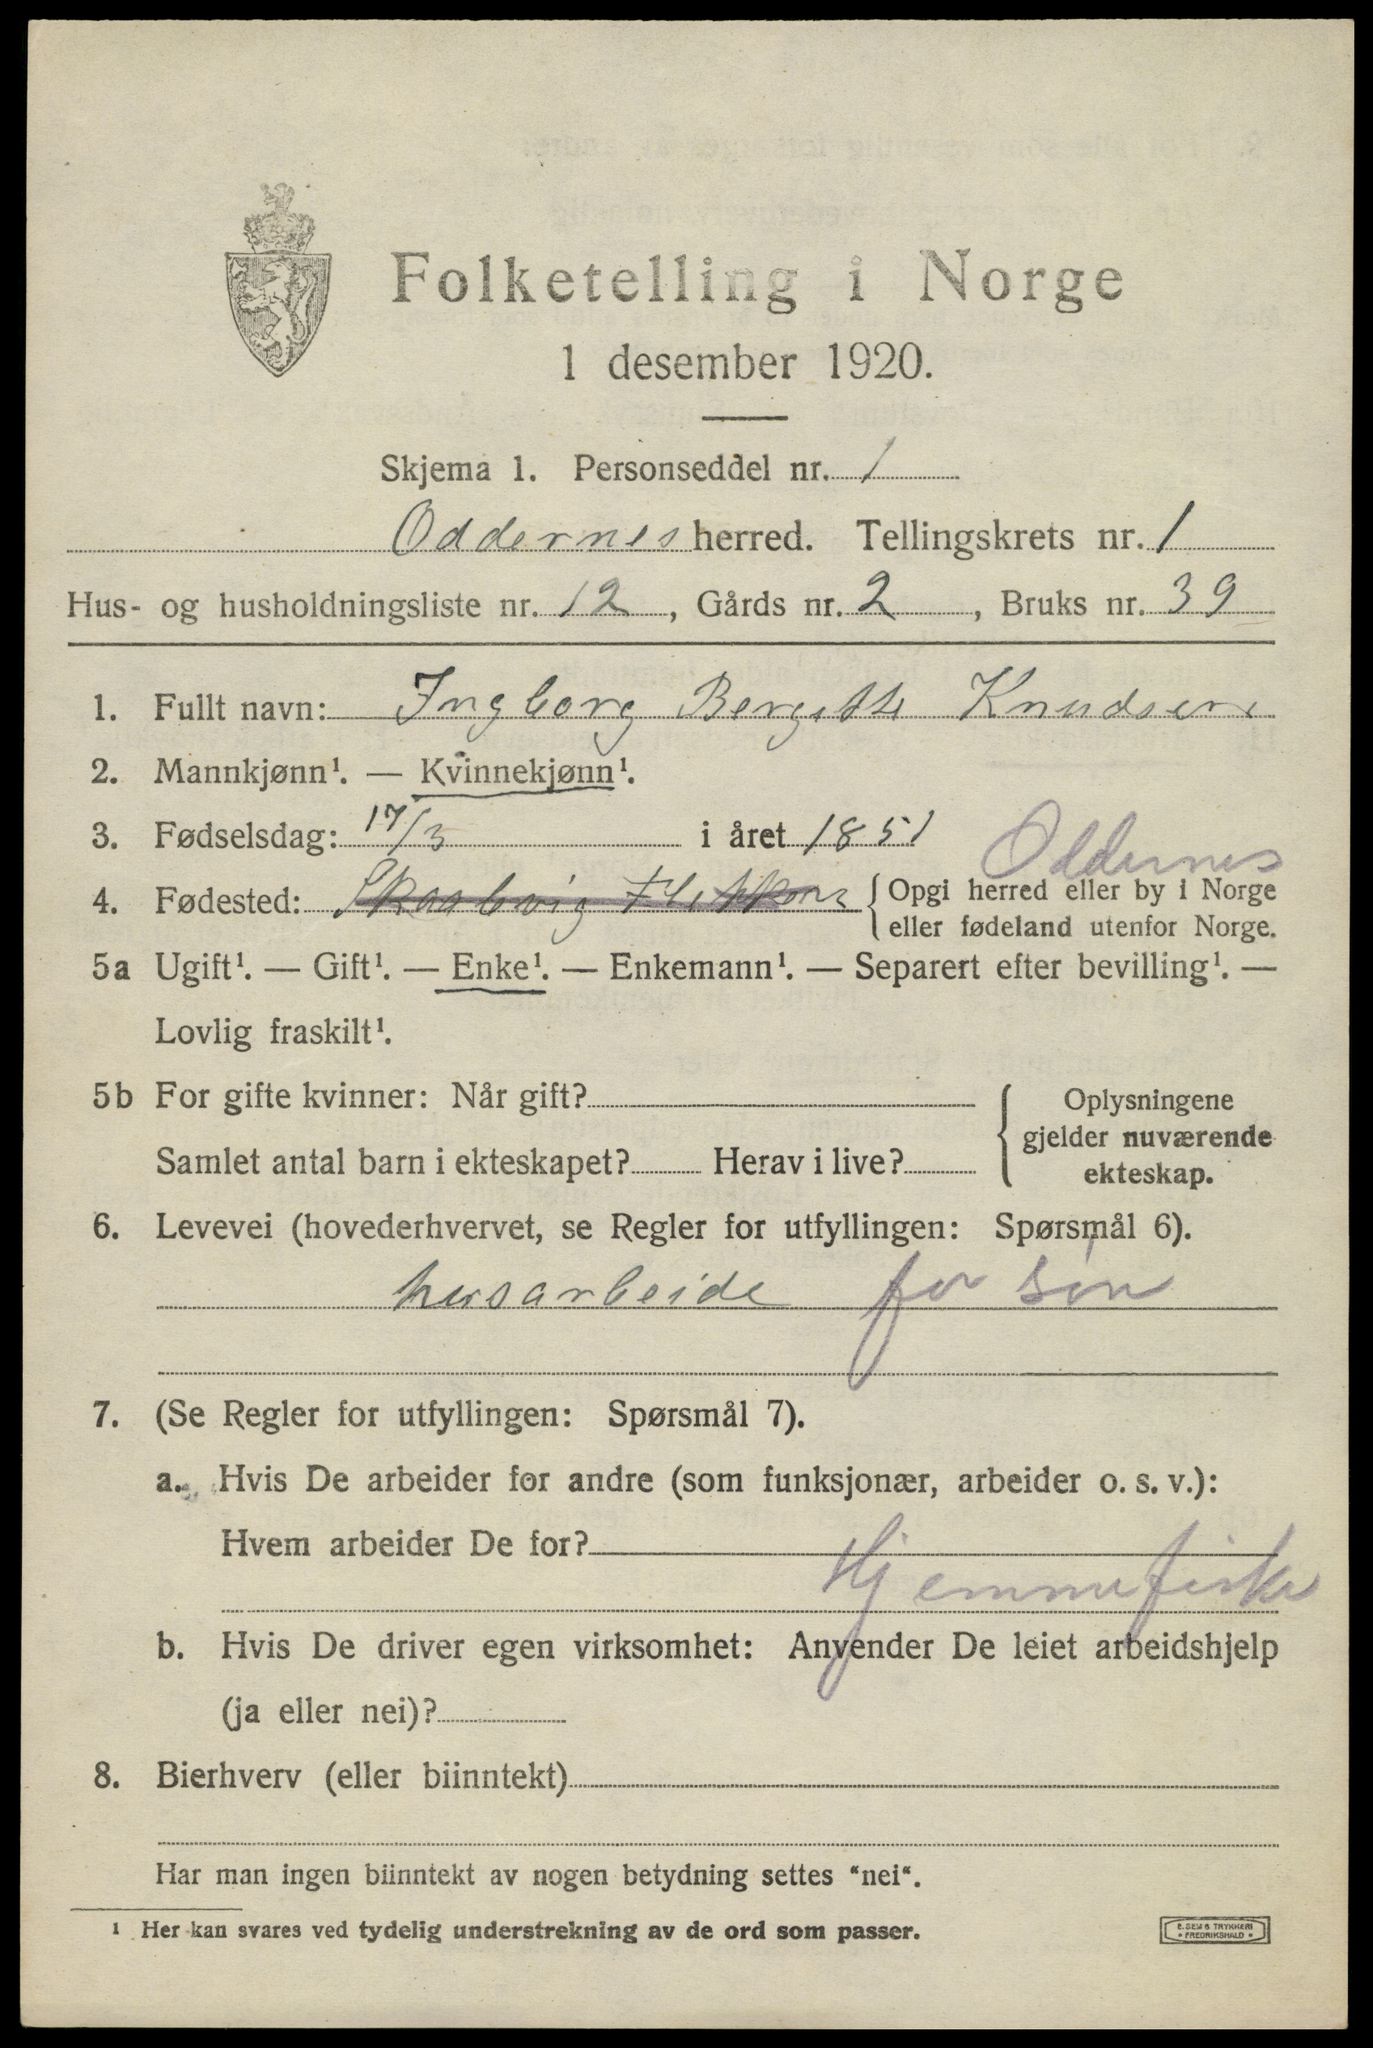 Folketelling i Norge
1 desember 1920.
Skjema 1. Personseddel nr. 1
Oddernes herred. Tellingskrets nr. 1
Hus- og husholdningsliste nr. 12, Gårds nr. 2, Bruks nr. 39
1. Fullt navn: Ingborg Bergitte Knudsen
2. Mannkjønn¹. — Kvinnekjønn¹.
3. Fødselsdag: 17/3 i året 1851
Oddernes
4. Fødested: { Opgi herred eller by i Norge
eller fødeland utenfor Norge.
5a Ugift¹. — Gift¹. — Enke¹. — Enkemann¹. — Separert efter bevilling¹. —
Lovlig fraskilt¹.
5b For gifte kvinner: Når gift?
Samlet antal barn i ekteskapet? Herav i live?
{ Oplysningene
gjelder nuværende
ekteskap.
6. Levevei (hovederhvervet, se Regler for utfyllingen: Spørsmål 6).
husarbeide for søn
7. (Se Regler for utfyllingen: Spørsmål 7).
a. Hvis De arbeider for andre (som funksjonær, arbeider o. s. v.):
Hvem arbeider De for?
Hjemmefiske
b. Hvis De driver egen virksomhet: Anvender De leiet arbeidshjelp
(ja eller nei)?
8. Bierhverv (eller biinntekt)
Har man ingen biinntekt av nogen betydning settes “nei“.
¹ Her kan svares ved tydelig understrekning av de ord som passer.
E. SEM'S TRYKKERI
• FREDRIKSHALD •